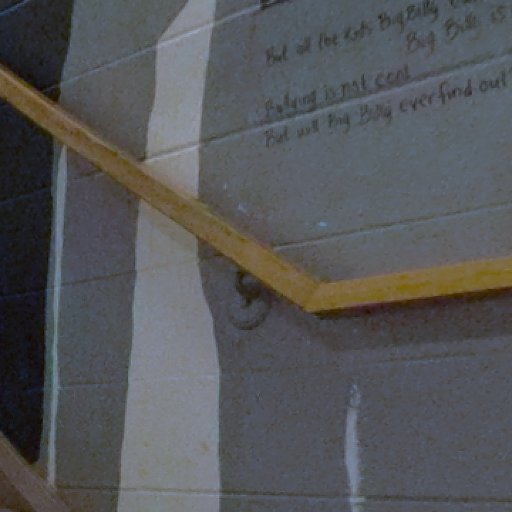 But all the kids Big Billy
Big Billi is
Bullying is not cool
But will Big Billy ever find out?